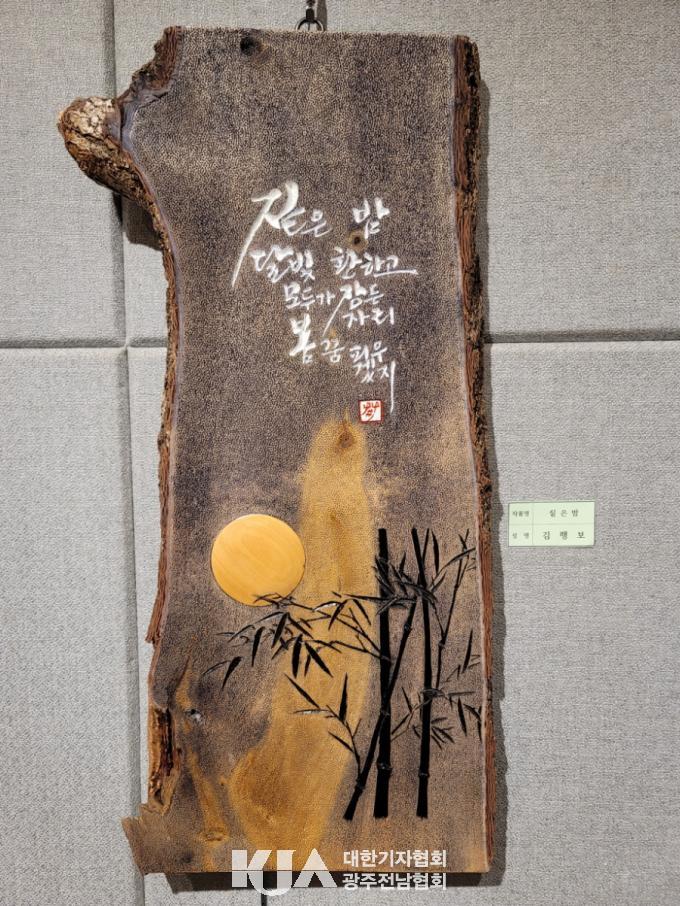 짙은 밤
달빛 환하고
모두가 잠든
자리
봄 꿈 피우
겠지
작품명 짙은밤
성 명 김 행 보
KJA 대한기자협회
광주전남협회